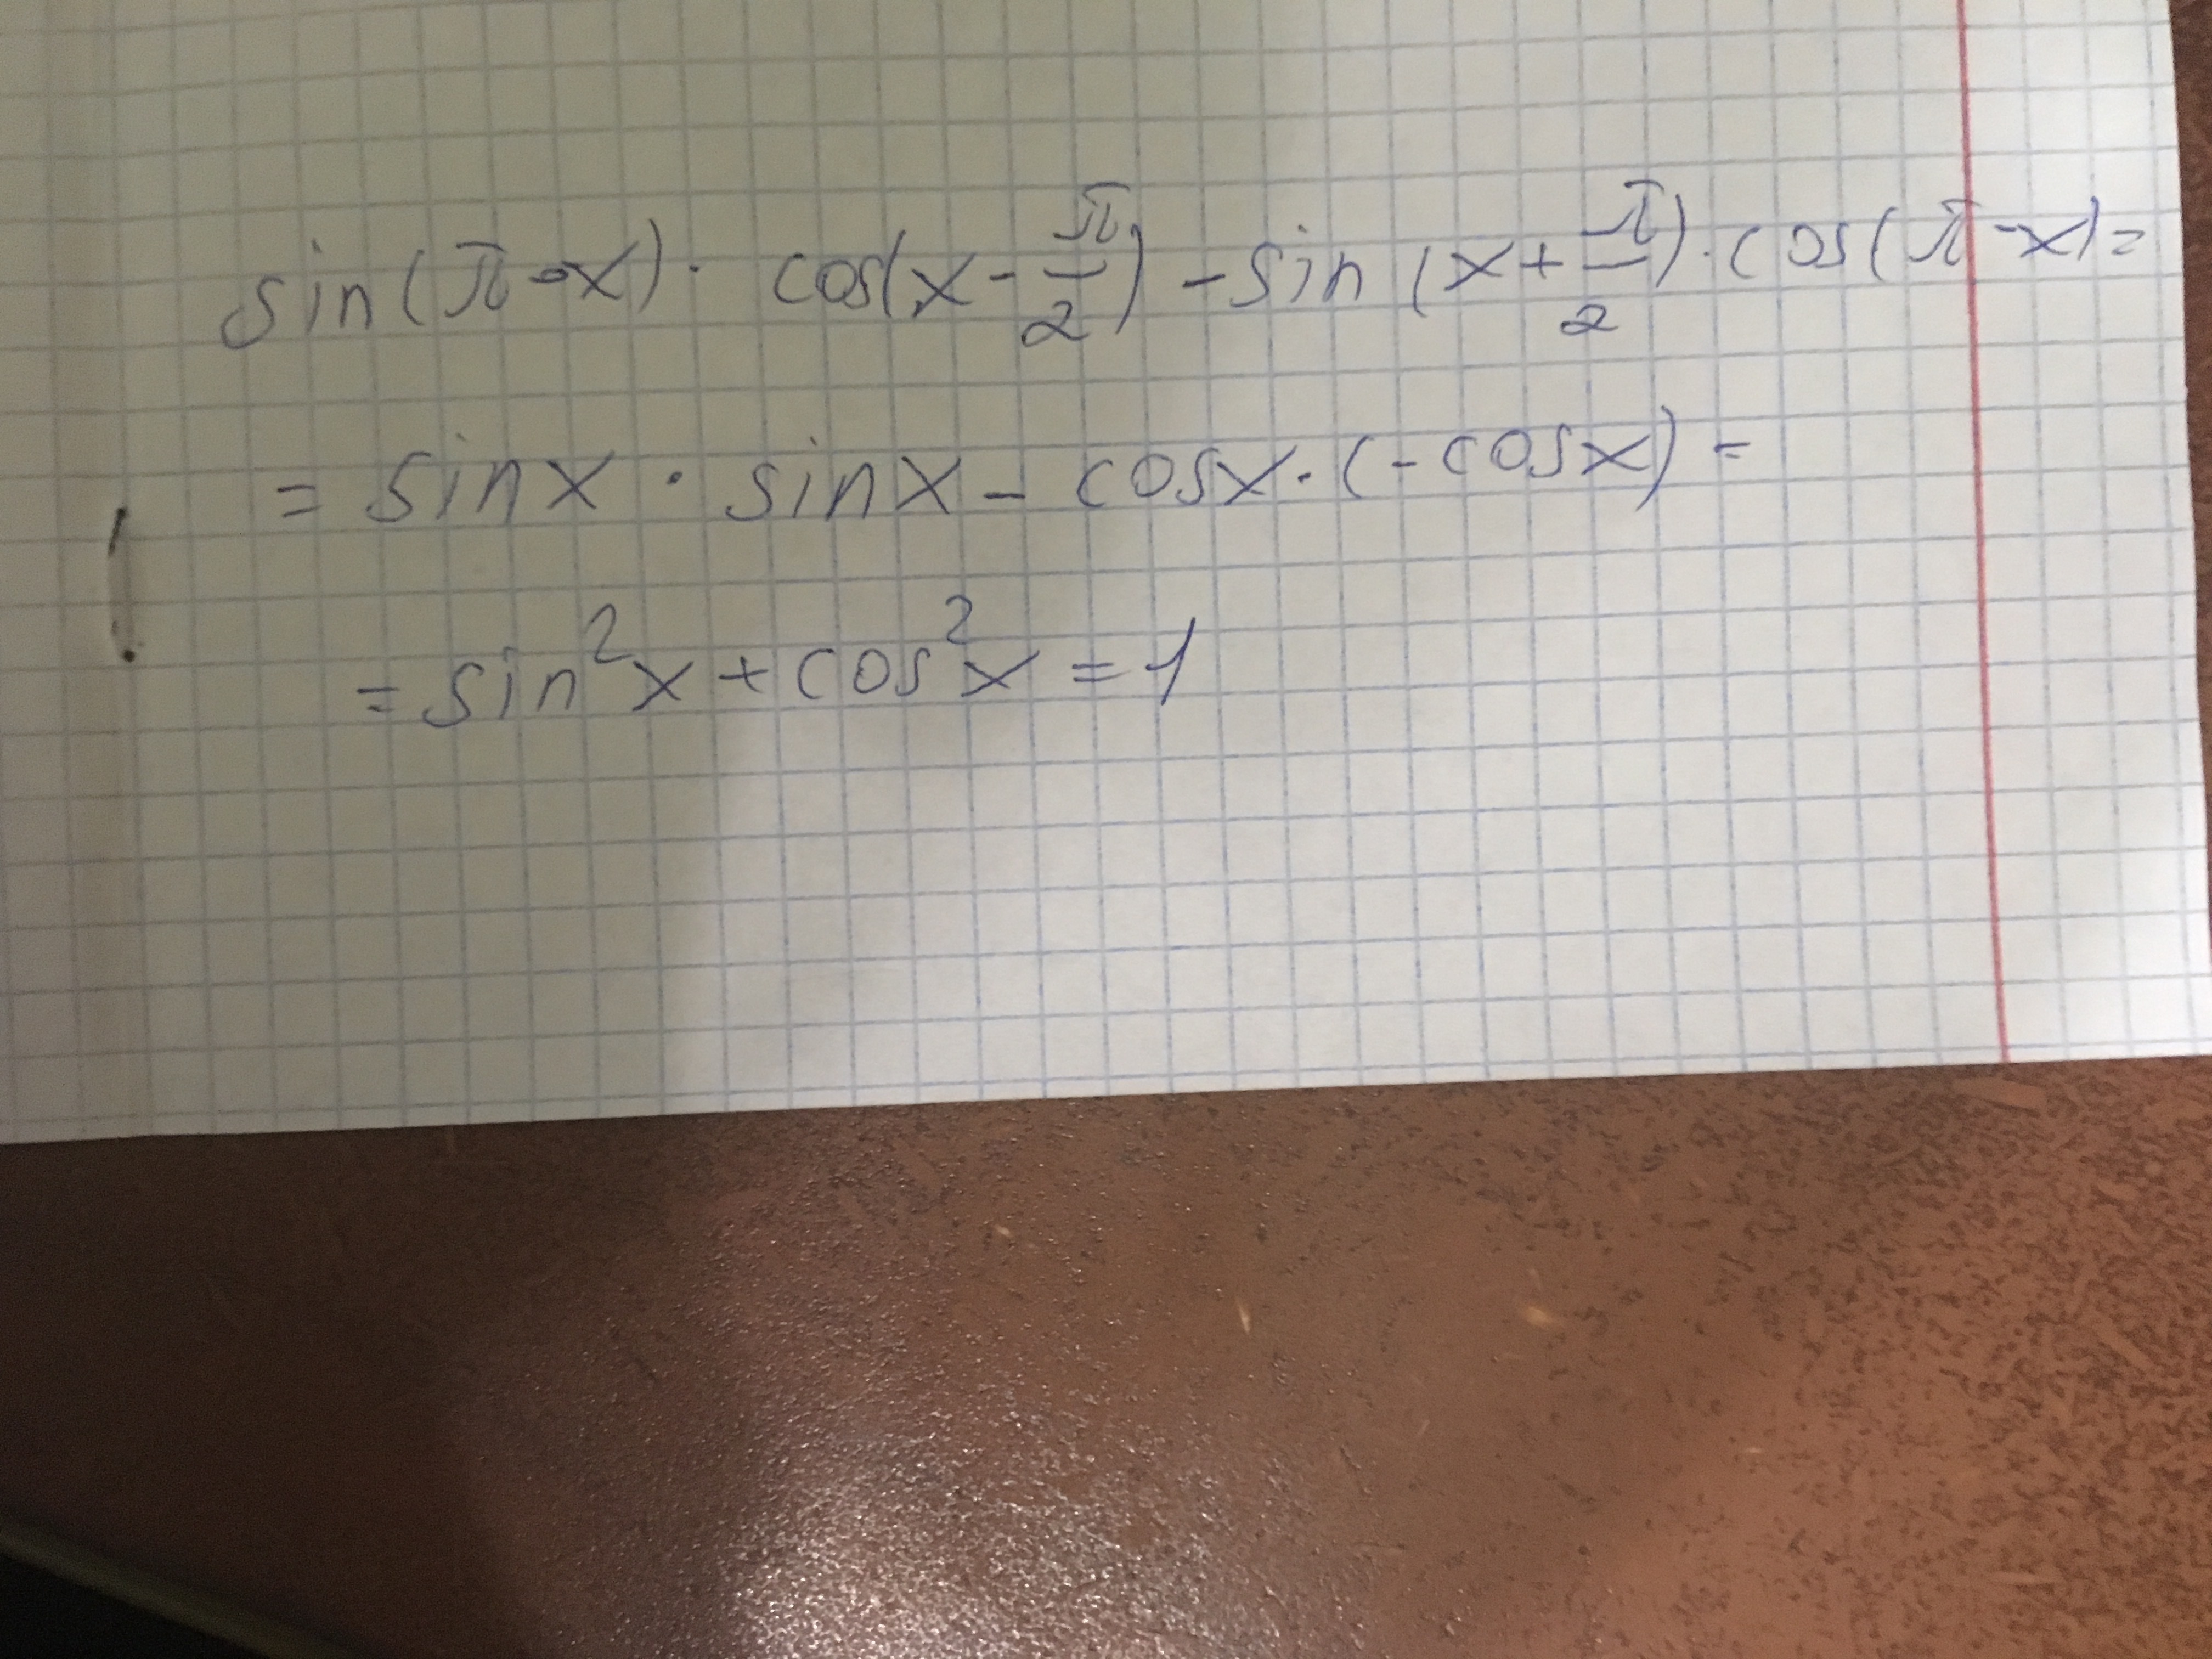 sin(π-x)· cos(x-π/2) - sin(x+π/2)·cos(π-x)=
= sinx · sinx - cosx·(-cosx) =
= sin²x + cos²x = 1